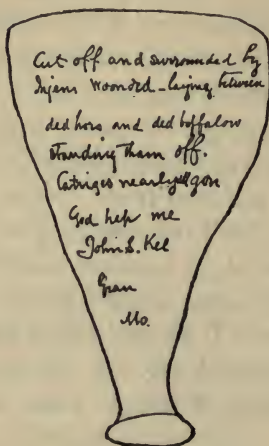 Cut off and surrounded by
Injens woonded - laying between
ded hors and ded boffalow
standing them off.
Catriges nearly all gon
God help me
John S. Kel
Gran
Mo.